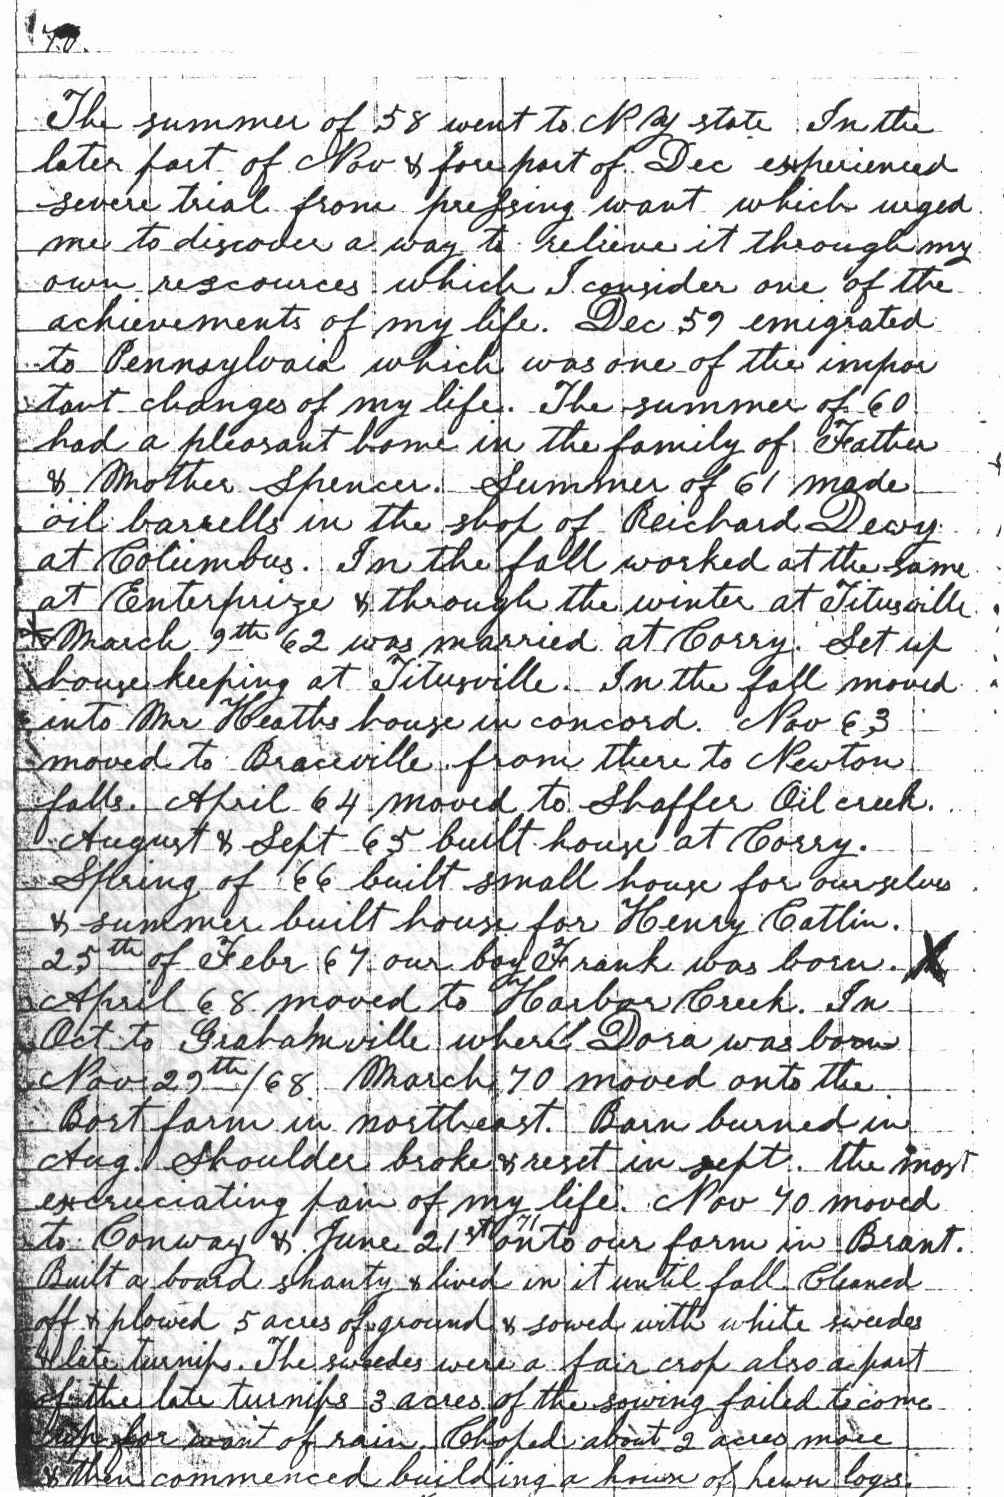 70.
The summer of 58 went to N Y state In the
later part of Nov & fore part of Dec experienced
severe trial from pressing want which urged
me to discover a way to relieve it through my
own rescources which I consider one of the
achievements of my life. Dec 59 emigrated
to Pennsylvaia which was one of the impor
tant changes of my life. The summer of 60
had a pleasant home in the family of Father
& Mother Spencer. Summer of 61 made
oil barrells in the shop of Reichard Dewy
at Columbus. In the fall worked at the same
at Enterprize & through the winter at Titusville
March 9th 62 was married at Corry. Set up
house keeping at Titusville. In the fall moved
into Mr Heaths house in concord. Nov 63
moved to Braceville from there to Newton
falls. April 64 moved to Shaffer Oil creek.
August & Sept 65 built house at Corry.
Spring of 66 built small house for ourselves
& summer built house for Henry Catlin.
25th of Febr 67 our boy Frank was born. X
April 68 moved to Harbor Creek. In
Oct to Grahamville where Dora was born
Nov 29th /68 March 70 moved onto the
Bort farm in northeast. Barn burned in
Aug. Shoulder broke & reset in sept. the most
excruciating pain of my life. Nov 70 moved
to Conway & June 21st 71 onto our farm in Brant.
Built a board shanty & lived in it until fall Cleaned
off & plowed 5 acres of ground & sowed with white sweedes
& late turnips. The sweedes were a fair crop also a part
of the late turnips 3 acres of the sowing failed to come
up for want of rain. Choped about 2 acres more
& then commenced building a house of hewn logs.